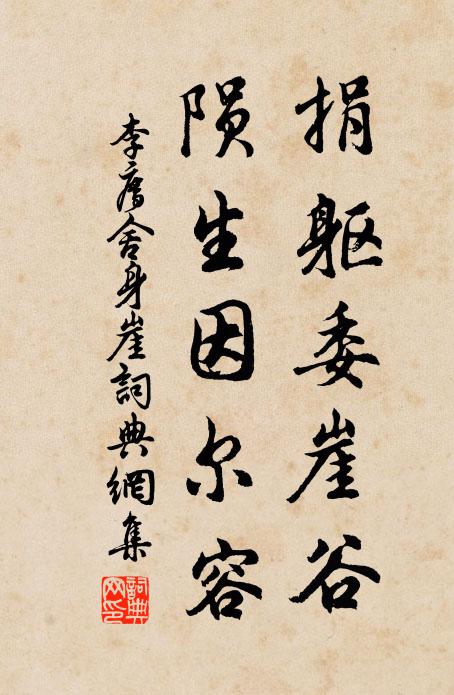 捐躯委崖谷
陨生因尔容
李廌舍身崖詞典網集
詞典网印